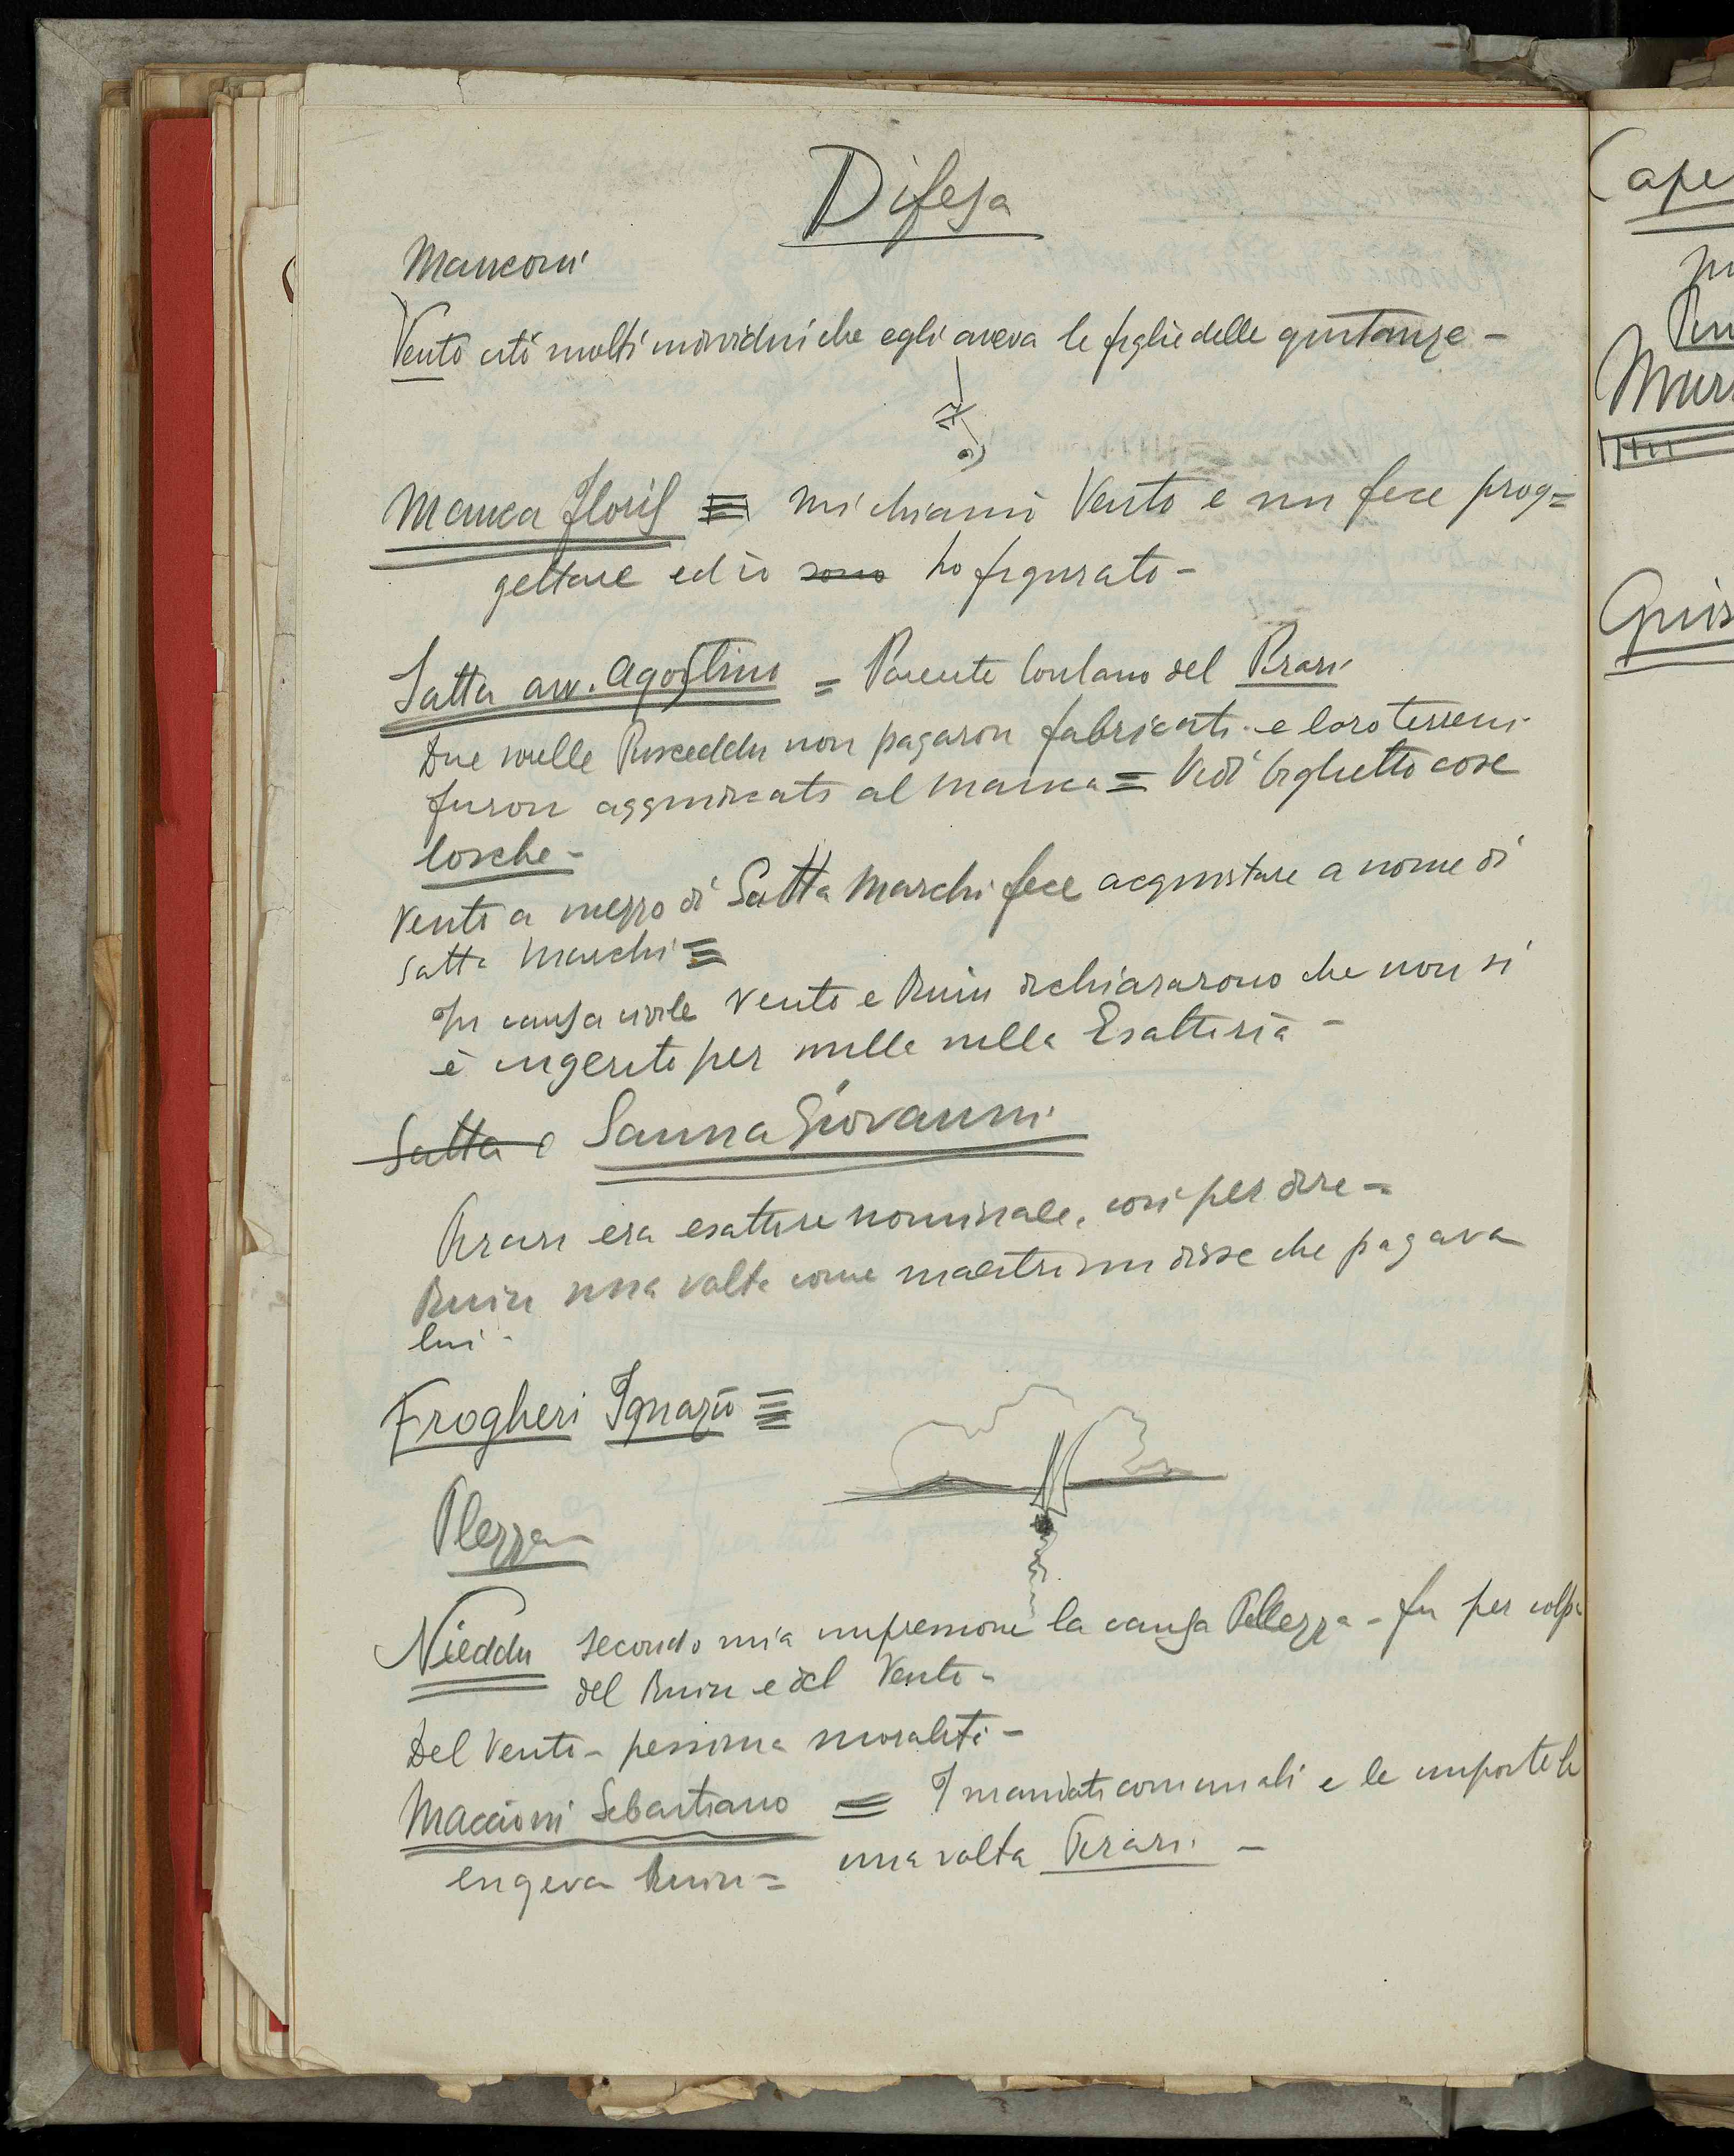 Difesa
Manconi
Vento citò molti individui che egli aveva le figlie delle quitanze -
Manca Floris = mi chiamò Vento e mi fece prog=
gettare ed io sono ho figurato -
Satta avv. Agostino = Parente lontano del Pirari
Due sorelle Pusceddu non pagaron fabricati e loro terreni
furon aggiudicati al Manca = Vedi biglietto cose
losche -
Vento a mezzo di Satta Marchi fece acquistare a nome di
Satta Marchi =
In causa civile Vento e Ruiu dichiararono che non si
è ingerito per nulla nella Esattoria -
Satta Sanna Giovanni
Pirari era esattore nominale, così per dire -
Ruiu una volta come maestri mi disse che pagava
lui -
Frogheri Ignazio =
Plezza
Nieddu secondo mia impressione la causa Pellezza - fu per colpa
del Ruiu e del Vento -
Del Vento - pessima moralità -
Maccioni Sebastiano = I mandati comunali e le imposte le
esigeva Ruiu = una volta Pirari -
Cape
Mur